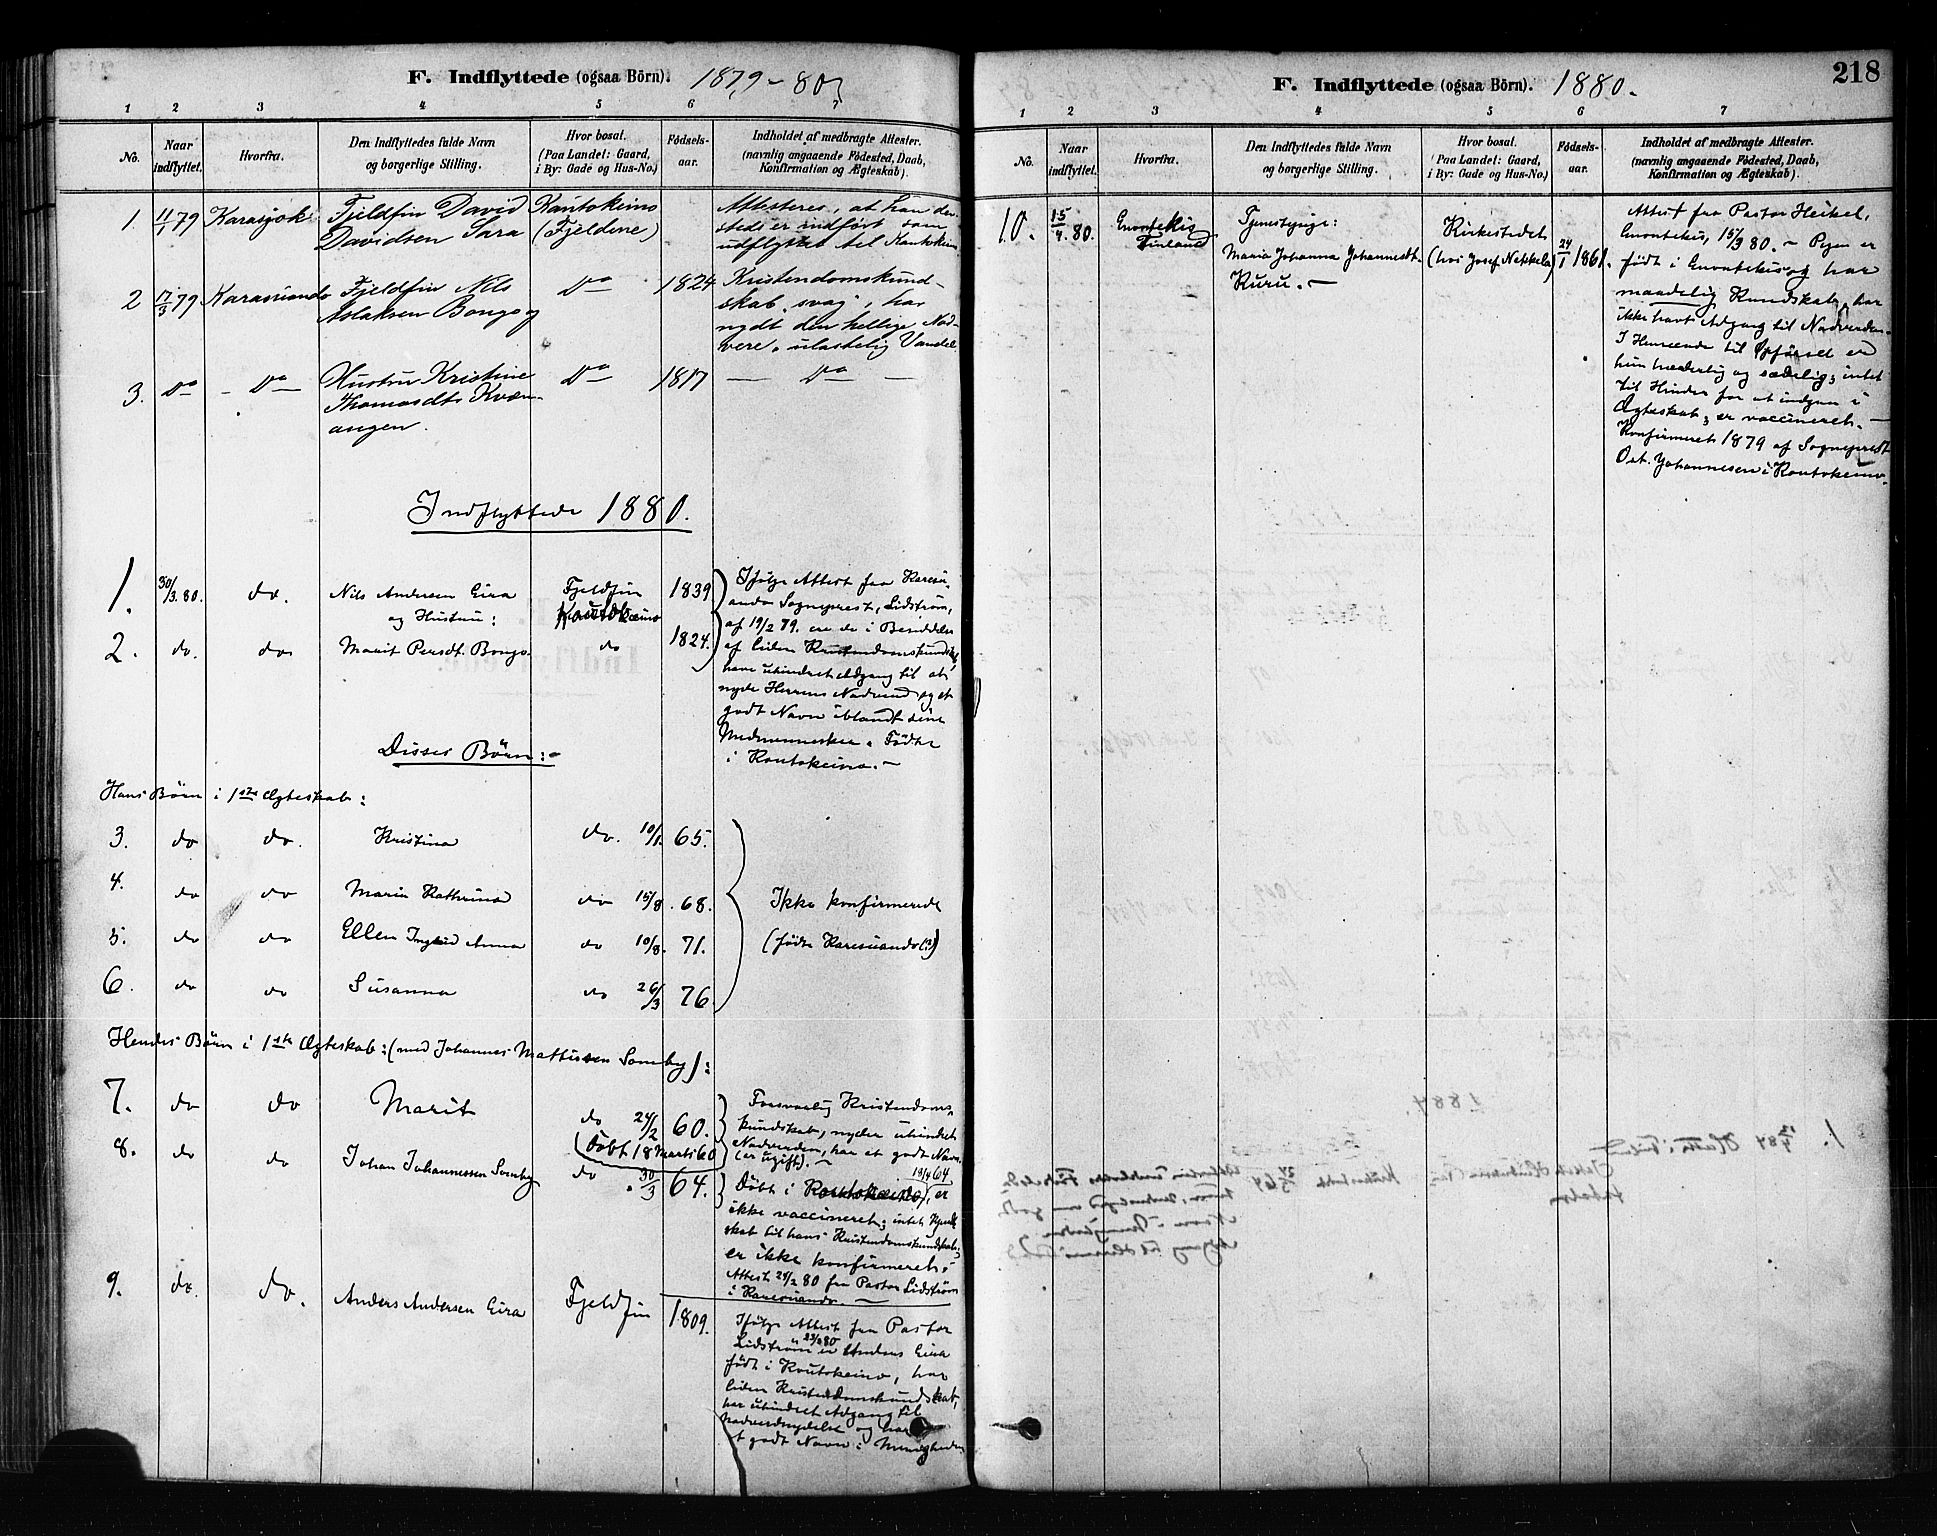 F. Indflyttede (ogsaa Börn). 1879-80
1 2 3 4 5 6 7
No. Naar indflyttet. Hvorfra. Den Indflyttedes fulde Navn og borgerlige Stilling. Hvor bosat. (Paa Landet: Gaard, i By: Gade og Hus-No.) Fødsels-aar. Indholdet af medbragte Attester. (navnlig angaaende Fødested, Daab, Konfirmation og Ægteskab).
1. 11/1 79 Karasjok Fjeldfin David Kautokeino Attesteres, at han der-
Davidsen Sara (Fjeldene) steds er indført som
udflyttet til Kautokeino
2 17/3 79 Karasuando Fjeldfin Nils Do 1824 Kristendomskund-
Aslaksen Bongo skab "svag", har
nydt den hellige Nad-
vere. ulastelig Vandel.
3. Do - Do Hustru Kristine Do 1817 — Do —
Thomasdtr Kvæn-
angen.
Indflyttede 1880.
1. 30/3.80. do. Nils Andersen Eira Fjeldfin 1839 Ifølge Attest fra Karesu-
og Hustru: Kautokeino ando Sogneprest, Lidström,
af 19/2 79. ere de i Besiddelse
2. do. do Marit Persdt. Bongo do 1824. af liden Kristendomskundskab,
have uhindret Adgang til at
nyde Herrens Nadverd og et
godt Navn iblandt sine
Medmennesker. Fødte
i Koutokeino. —
Disses Börn:-
Hans Börn i 1ste Ægteskab:
3. do do. Kristina do. 10/1. 65.
4. do do Maria Kathrina do 15/8. 68. Ikke konfirmerede
5. do do Ellen Ingrid Anna do 10/8. 71. (fødte Karesuando(?))
6. do do Susanna do 26/3 76.
Hendes Börn i 1ste Ægteskab: (med Johannes Mathissen Somby):
7. do do Marit do 24/2 60. Forsvarlig Kristendoms-
kundskab, nyder uhindret
(Döbt 18 Marts 60 Nadverden, har et godt Navn.
(er ugift). —
8. do do Johan Johannessen Somby do 30/3 64. Döbt i Koutokeino 19/4 64, er
ikke vaccineret; intet Kjend-
skab til hans Kristendomskundskab;
er ikke konfirmeret;
Attest 24/2 80 fra Pastor Lidström
i Karesuando. —
9. do. do. Anders Andersen Eira Fjeldfin 1809. Ifølge Attest fra Pastor
Lidström 23/2 80 er Anders Eira
født i Koutokeino, har
liden Kristendomskundskab,
har uhindret Adgang til
Nadverdnydelse og har
et godt Navn i Menigheden
F. Indflyttede (ogsaa Börn). 1880.
218
1 2 3 4 5 6 7
No. Naar indflyttet. Hvorfra. Den Indflyttedes fulde Navn og borgerlige Stilling. Hvor bosat. (Paa Landet: Gaard, i By: Gade og Hus-No.) Fødsels-aar. Indholdet af medbragte Attester. (navnlig angaaende Fødested, Daab, Konfirmation og Ægteskab).
10. 15/4.80. Enontekis Tjenestepige: Kirkestedet 24/1 1861. Attest fra Pastor Heikel,
Finland Maria Johanna Johannesdt. (hos Josef Nekkela) Enontekis, 15/3 80. — Pigen er
Kuru. — født i Enontekis og har
maadelig Kundskab, har
ikke havt Adgang til Nadverden.
I Henseende til Opførsel er
hun hæderlig og sædelig; intet
til Hinder for at indgaa i
Ægteskab; er vaccineret. —
Konfirmeret 1879 af Sogneprest
Ost. Johannesen i Koutokeino.